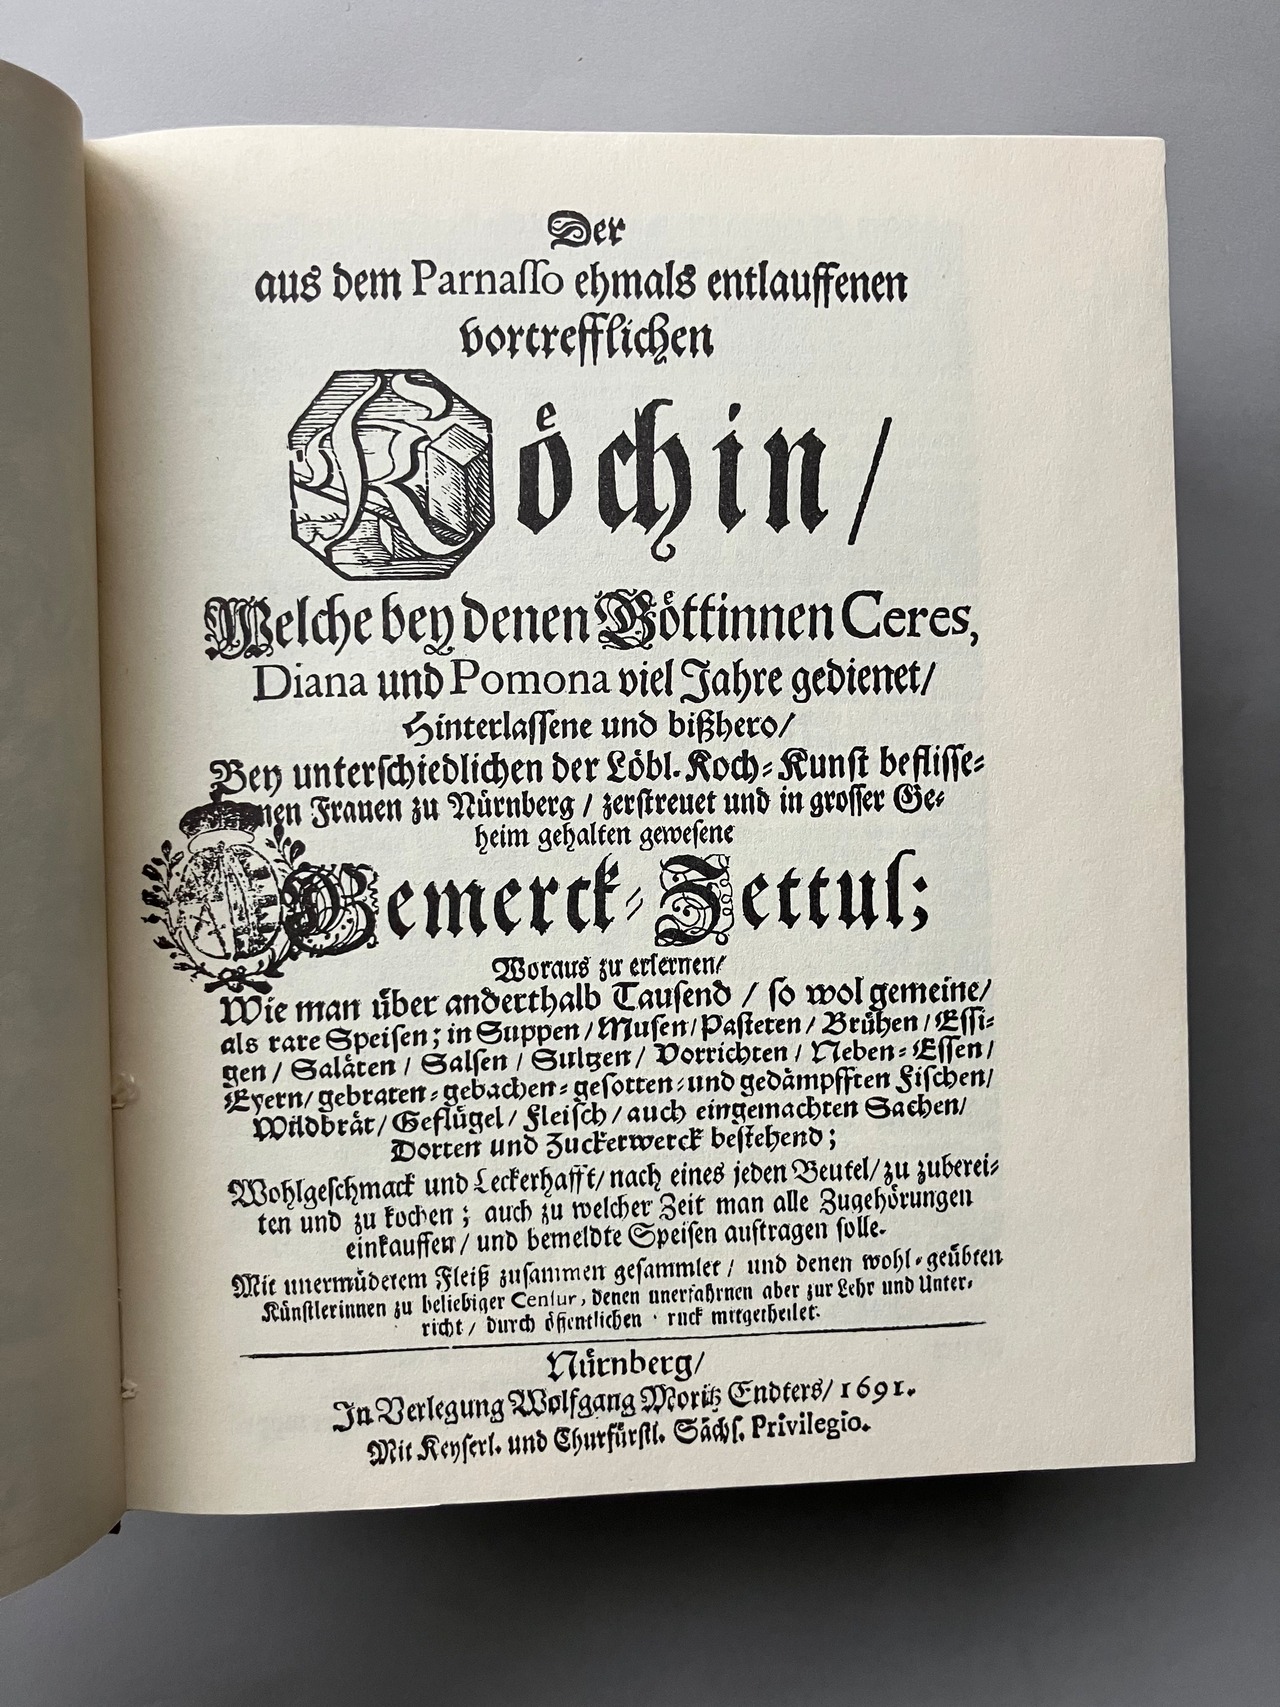 Der
aus dem Parnaſſo ehmals entlauffenen
vortrefflichen
Koͤchin /
Welche bey denen Goͤttinnen Ceres,
Diana und Pomona viel Jahre gedienet /
Hinterlaſſene und bißhero /
Bey unterſchiedlichen der Loͤbl. Koch-Kunſt befliſſe-
nen Frauen zu Nuͤrnberg / zerſtreuet und in groſſer Ge-
heim gehalten geweſene
Gemerck-Zettul;
Woraus zu erlernen /
Wie man uͤber anderthalb Tauſend / ſo wol gemeine /
als rare Speiſen; in Suppen / Muſen / Paſteten / Bruͤhen / Eſſi-
gen / Salaͤten / Salſen / Sultzen / Vorrichten / Neben-Eſſen /
Eyern / gebraten-gebachen-geſotten-und gedaͤmpfften Fiſchen /
Wildbraͤt / Gefluͤgel / Fleiſch / auch eingemachten Sachen /
Dorten und Zuckerwerck beſtehend;
Wohlgeſchmack und Leckerhafft / nach eines jeden Beutel / zu zuberei-
ten und zu kochen; auch zu welcher Zeit man alle Zugehoͤrungen
einkauffen / und bemeldte Speiſen auftragen ſolle.
Mit unermuͤdetem Fleiß zuſammen geſammlet / und denen wohl-geuͤbten
Kuͤnſtlerinnen zu beliebiger Cenſur, denen unerfahrnen aber zur Lehr und Unter-
richt / durch oͤffentlichen ruck mitgetheilet.
Nuͤrnberg /
In Verlegung Wolfgang Moritz Endters / 1691.
Mit Keyſerl. und Churfuͤrſtl. Saͤchſ. Privilegio.